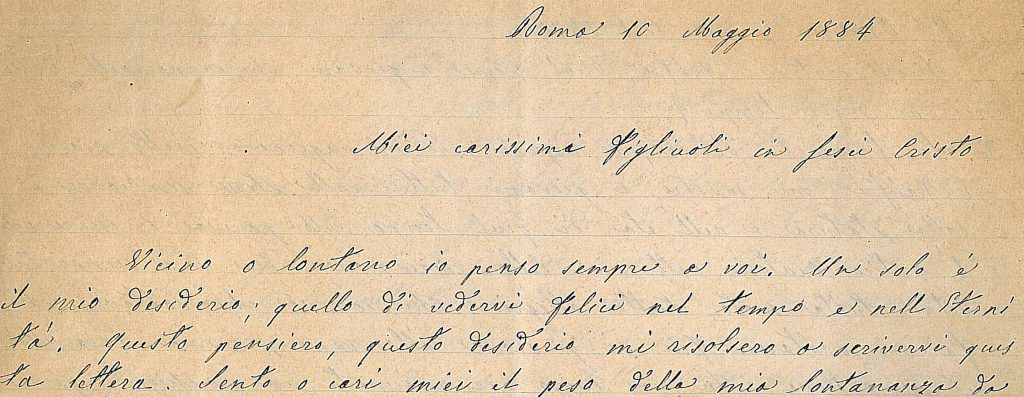 Roma 10 Maggio 1884
Miei carissimi Figliuoli in Gesù Cristo
Vicino o lontano io penso sempre a voi. Un solo é
il mio desiderio; quello di vedervi felici nel tempo e nell Eterni
tá. Questo pensiero, questo desiderio mi risolsero a scrivervi ques
ta lettera. Sento o cari miei il peso della mia lontananza da